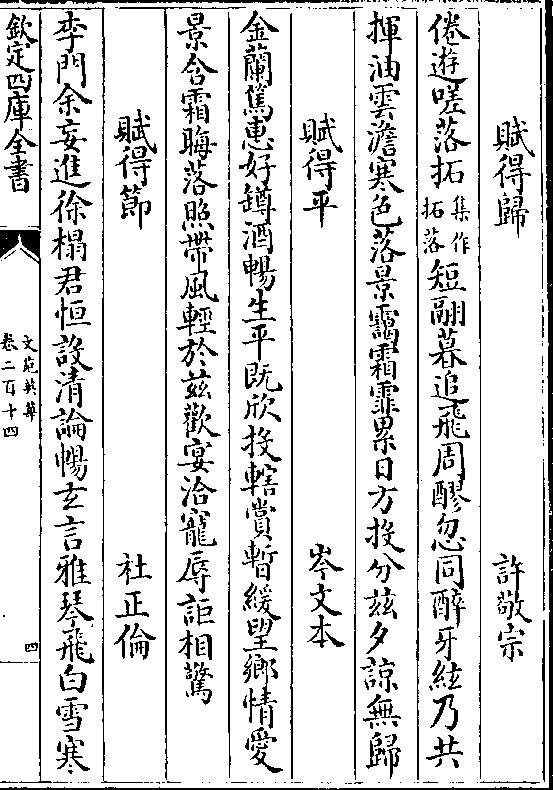 賦得歸 許敬宗
倦遊嗟落拓集作拓落短翮慕追飛周醪忽同醉牙絃乃共
揮油雲澹寒色落景靄霜霏累日方投分兹夕諒無歸
賦得平 岑文本
金蘭篤惠好罇酒暢生平既欣投轄賞暫緩望鄉情愛
景含霜晦落照帶風輕於兹歡宴洽寵辱詎相驚
賦得節 杜正倫
李門余妄進徐榻君恒設清論暢玄言雅琴飛白雪寒
欽定四庫全書
文苑英華
卷二百十四
四